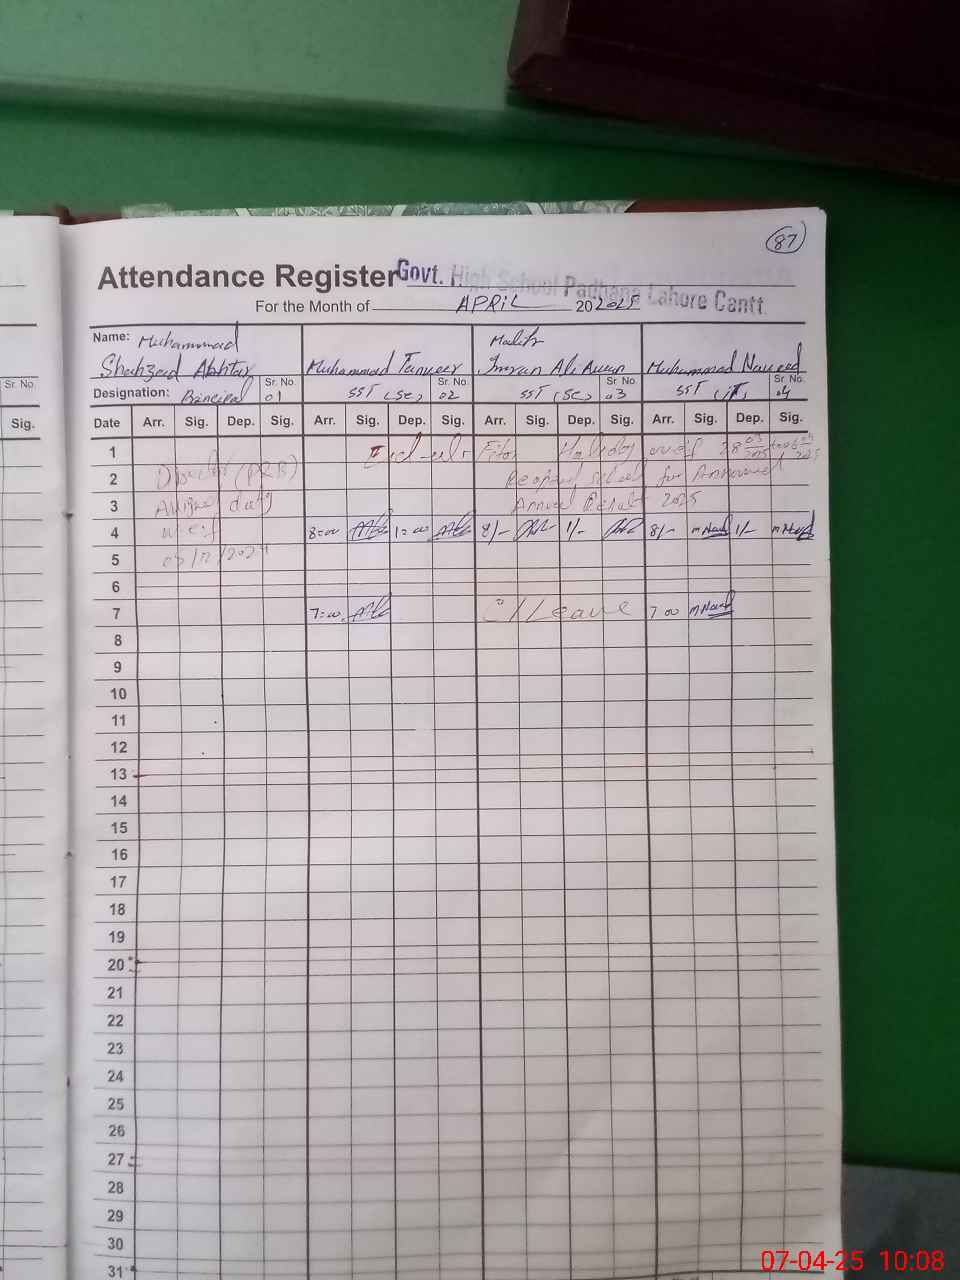 87
Attendance Register Govt. High School Padhana Lahore Cantt.
For the Month of APRIL 20 2025
Name: Muhammad Shahzad Akhtar
Muhammad Tanveer
Malik Imran Ali Awan
Muhammad Naveed
Sr. No. Sr. No. Sr. No. Sr. No. Sr. No.
Designation: Principal 01 SST (SC) 02 SST (SC) 03 SST (IT) 04
Sig. Date Arr. Sig. Dep. Sig. Arr. Sig. Dep. Sig. Arr. Sig. Dep. Sig. Arr. Sig. Dep. Sig.
1 Eid-ul-Fitar Holiday w.e.f 28
2 Director (P&B) Reopned school for Announced
3 duty Annual Result 2025
4 w.e.f 8=00 1=00 8/- 1/- 8/- 1/-
5
6
7 7=00 C/Leave 7 00
8
9
10
11
12
13
14
15
16
17
18
19
20
21
22
23
24
25
26
27
28
29
30
31
07-04-25 10:08